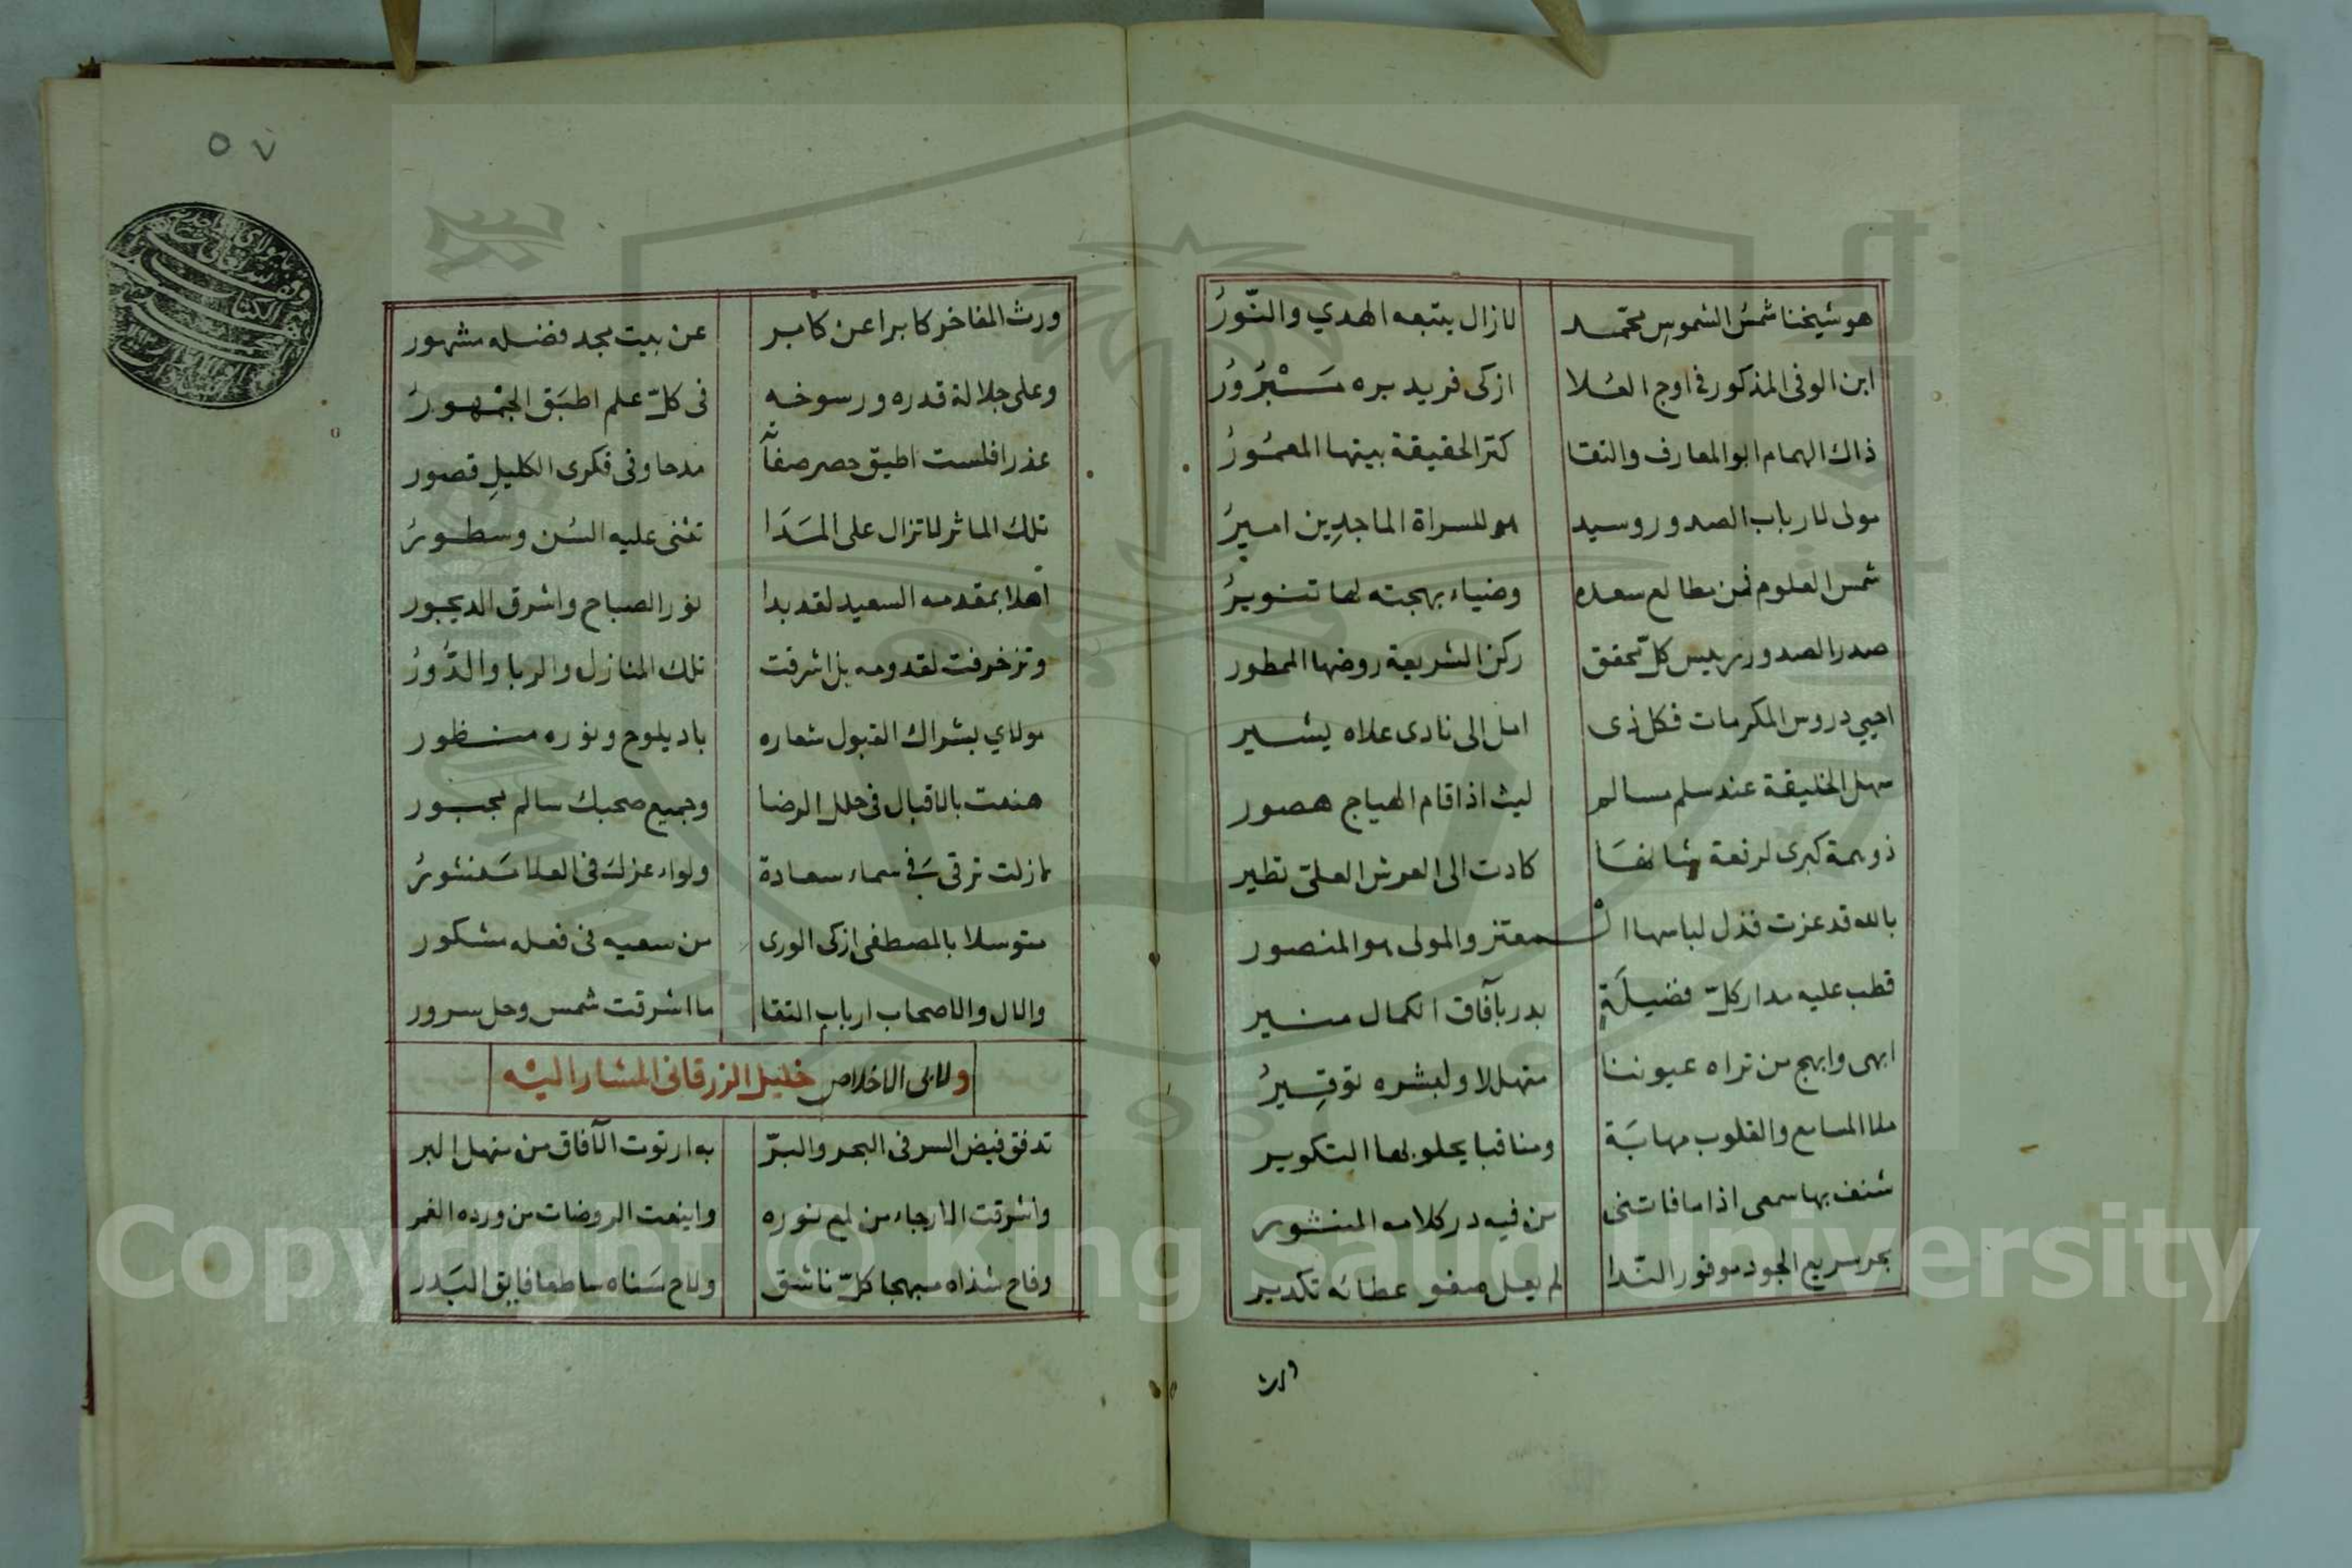 هو شيخنا شمسُ الشموسِ محمّد لازال يتبعه الهدي والنّورُ
ابن الوفى المذكور فى اوج العُلا ازكى فريد بره مَبْرُورُ
ذاك الهمام ابو المعارف والتقا كنز الحقيقة بيتها المعمُورُ
مولى لارباب الصدور وسيد هو للسراة الماجدِين اميرُ
شمس العلوم فمن مطالع سعده وضياء بهجته لها تنويرُ
صدر الصدور رييس كلّ محقق ركن الشريعة روضها الممطور
احيي دروس المكرمات فكل ذى امل الى نادى علاه يشير
سهل الخليقة عند سلم مسالم ليث اذا قام الهياج هصور
ذو همة كبرى لرفعة شانها كادت الى العرش العلىّ تطير
بالله قد عزت فذل لباسها المعتز والمولى هو المنصور
قطب عليه مدار كلّ فضيلَةٍ بدر بآفاق الكمال منير
ابهى وابهج من تراه عيوننا متهللا ولبشره توقِيرُ
ملا المسامع والقلوب مهابَة ومناقبا يحلو بها التكوير
شنف بها سمعى اذا ما فاتنى من فيه در كلامه المنثور
بحر سريع الجود موفور النّدا لم يعل صفو عطائه تكدير
ورث
٥٧
ورث المفاخر كابرا عن كابر عن بيت مجد فضله مشهور
وعلى جلالة قدره ورسوخه فى كلّ علم اطبَق الجمْهورُ
عذرا فلست اطيق حصر صفاته مدحا وفى فكرى الكليلِ قصور
تلك الماثر لاتزال على المَدَا تثنى عليه السُن وسطورُ
اهلا بمقدمه السعيد لقد بدا نور الصباح واشرق الديجور
وتزخرفت لقدومه بل اشرقت تلك المنازل والربا والدُّورُ
مولاي بشراك القبول شعاره باد يلوح ونوره منظور
هنعت بالاقبال فى حلل الرضا وجميع صحبك سالم مجبور
مازلت ترقى فى سماء سعادة ولواء عزك فى العلا منشورُ
متوسلا بالمصطفى ازكى الورى من سعيه فى فعله مشكور
والال والاصحاب ارباب التقا ما اشرقت شمس وحل سرور
ولابى الاخلاص خليل الزرقانى المشار اليْه
تدفق فيض السر فى البحر والبرّ به ارتوت الآفاق من منهل البر
واشرقت الارجاء من لمع نوره واينعت الروضات من ورده الغمر
وفاح شذاه مبهجا كلّ ناشق ولاح سَناه ساطعا فايق البَدر
Copyright © King Saud University